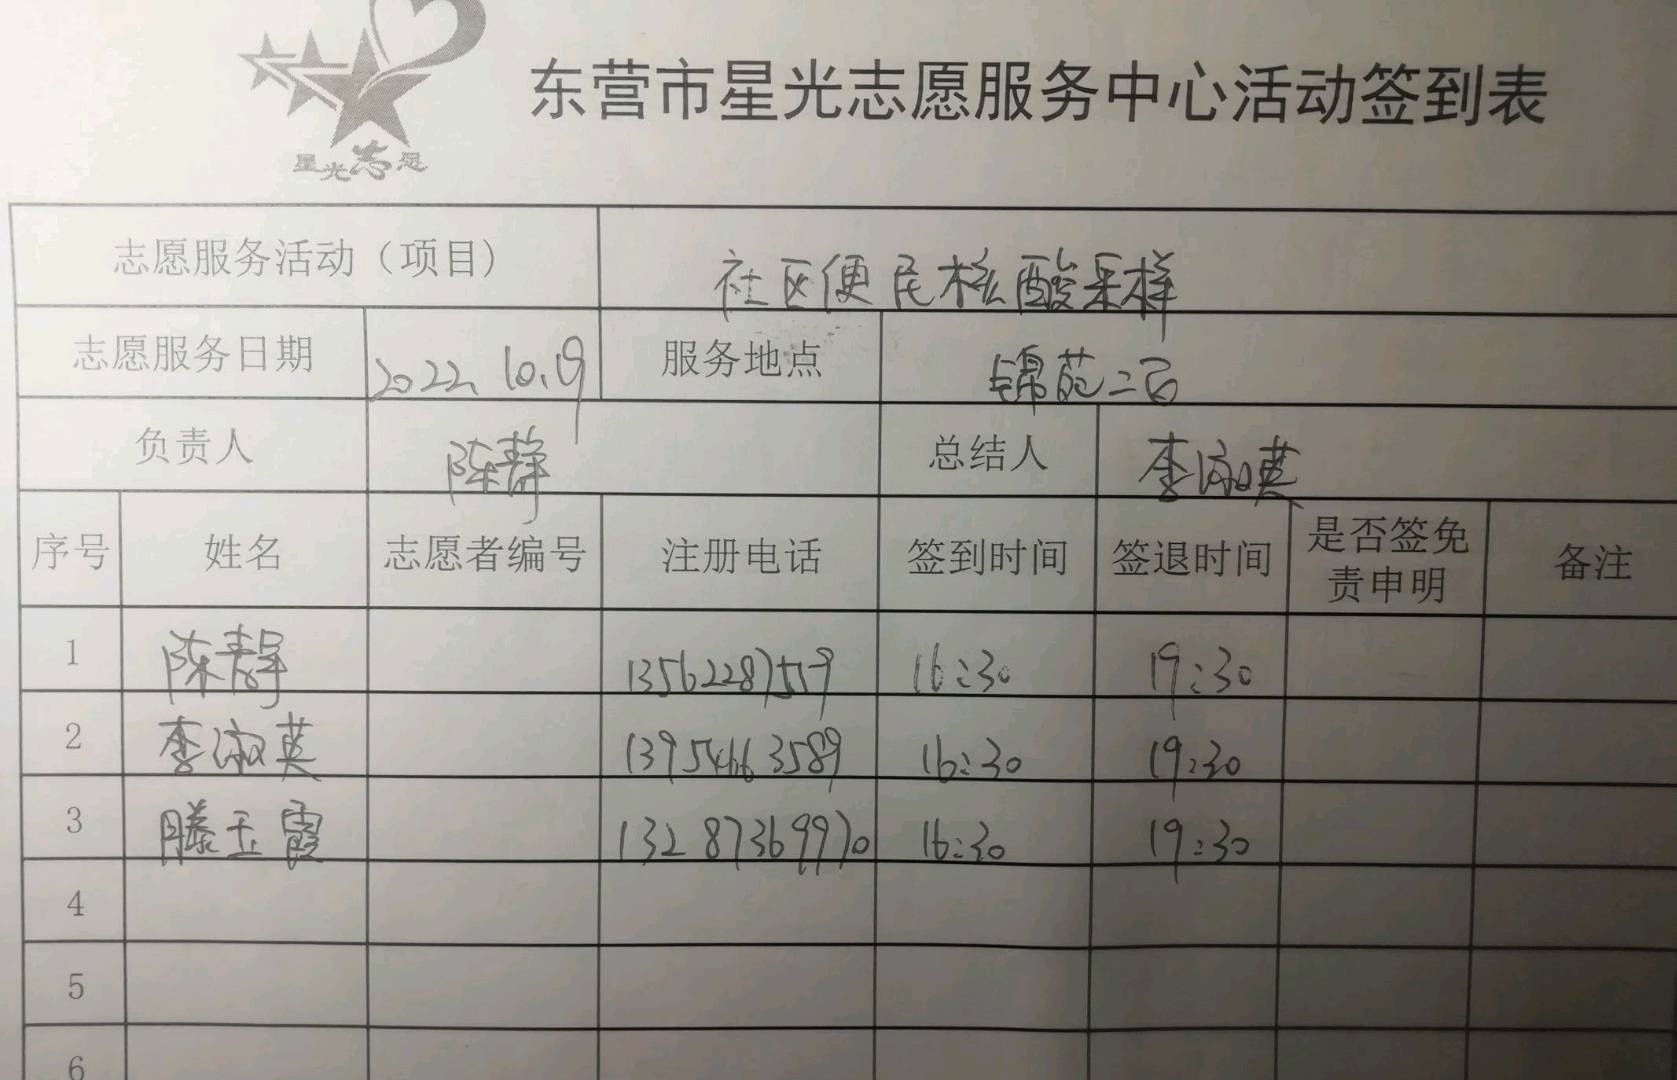 星光志愿
东营市星光志愿服务中心活动签到表
志愿服务活动（项目） 社区便民核酸采样
志愿服务日期 2022.10.19 服务地点 锦苑二区
负责人 陈静 总结人 李淑英
序号 姓名 志愿者编号 注册电话 签到时间 签退时间 是否签免责申明 备注
1 陈静 13562287559 16:30 19:30
2 李淑英 13954663589 16:30 19:30
3 滕玉霞 13287369970 16:30 19:30
4
5
6